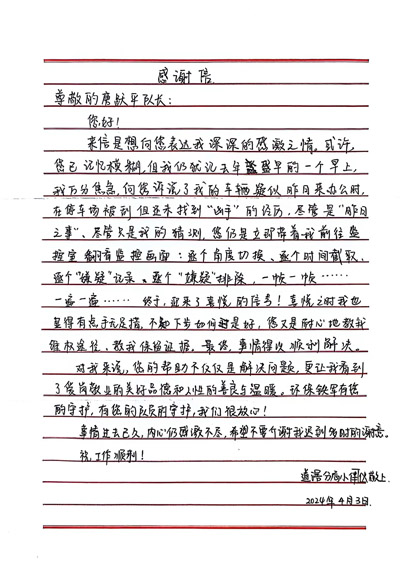 感谢信
尊敬的唐跃平队长：
您好！
来信是想向您表达我深深的感激之情。或许，
您已记忆模糊，但我仍然记去年盛夏早的一个早上，
我万分焦急，向您诉说了我的车辆疑似昨日来办公时，
在停车场被刮但并未找到“凶手”的经历，尽管是“昨日
之事”、尽管只是我的猜测，您仍是立即带着我前往监
控室翻看监控画面：逐个角度切换、逐个时间截取，
逐个“嫌疑”记录、逐个“嫌疑”排除，一帧一帧……
一遍一遍……终于，迎来了喜悦的信号！喜悦之时我也
显得有点手足无措，不知下步如何是好，您又是耐心地教我
维权途径、教我保留证据。最终，事情得以顺利解决。
对我来说，您的帮助不仅仅是解决问题，更让我看到
了爱岗敬业的美好品德和人性的善良与温暖。环保铁军有您
的守护，有您的应质的守护，我们很放心！
事情过去已久，内心仍感激不尽，希望不要介谢我迟到多时的谢意。
祝工作顺利！
道滘分局小
敬上
2024年4月3日